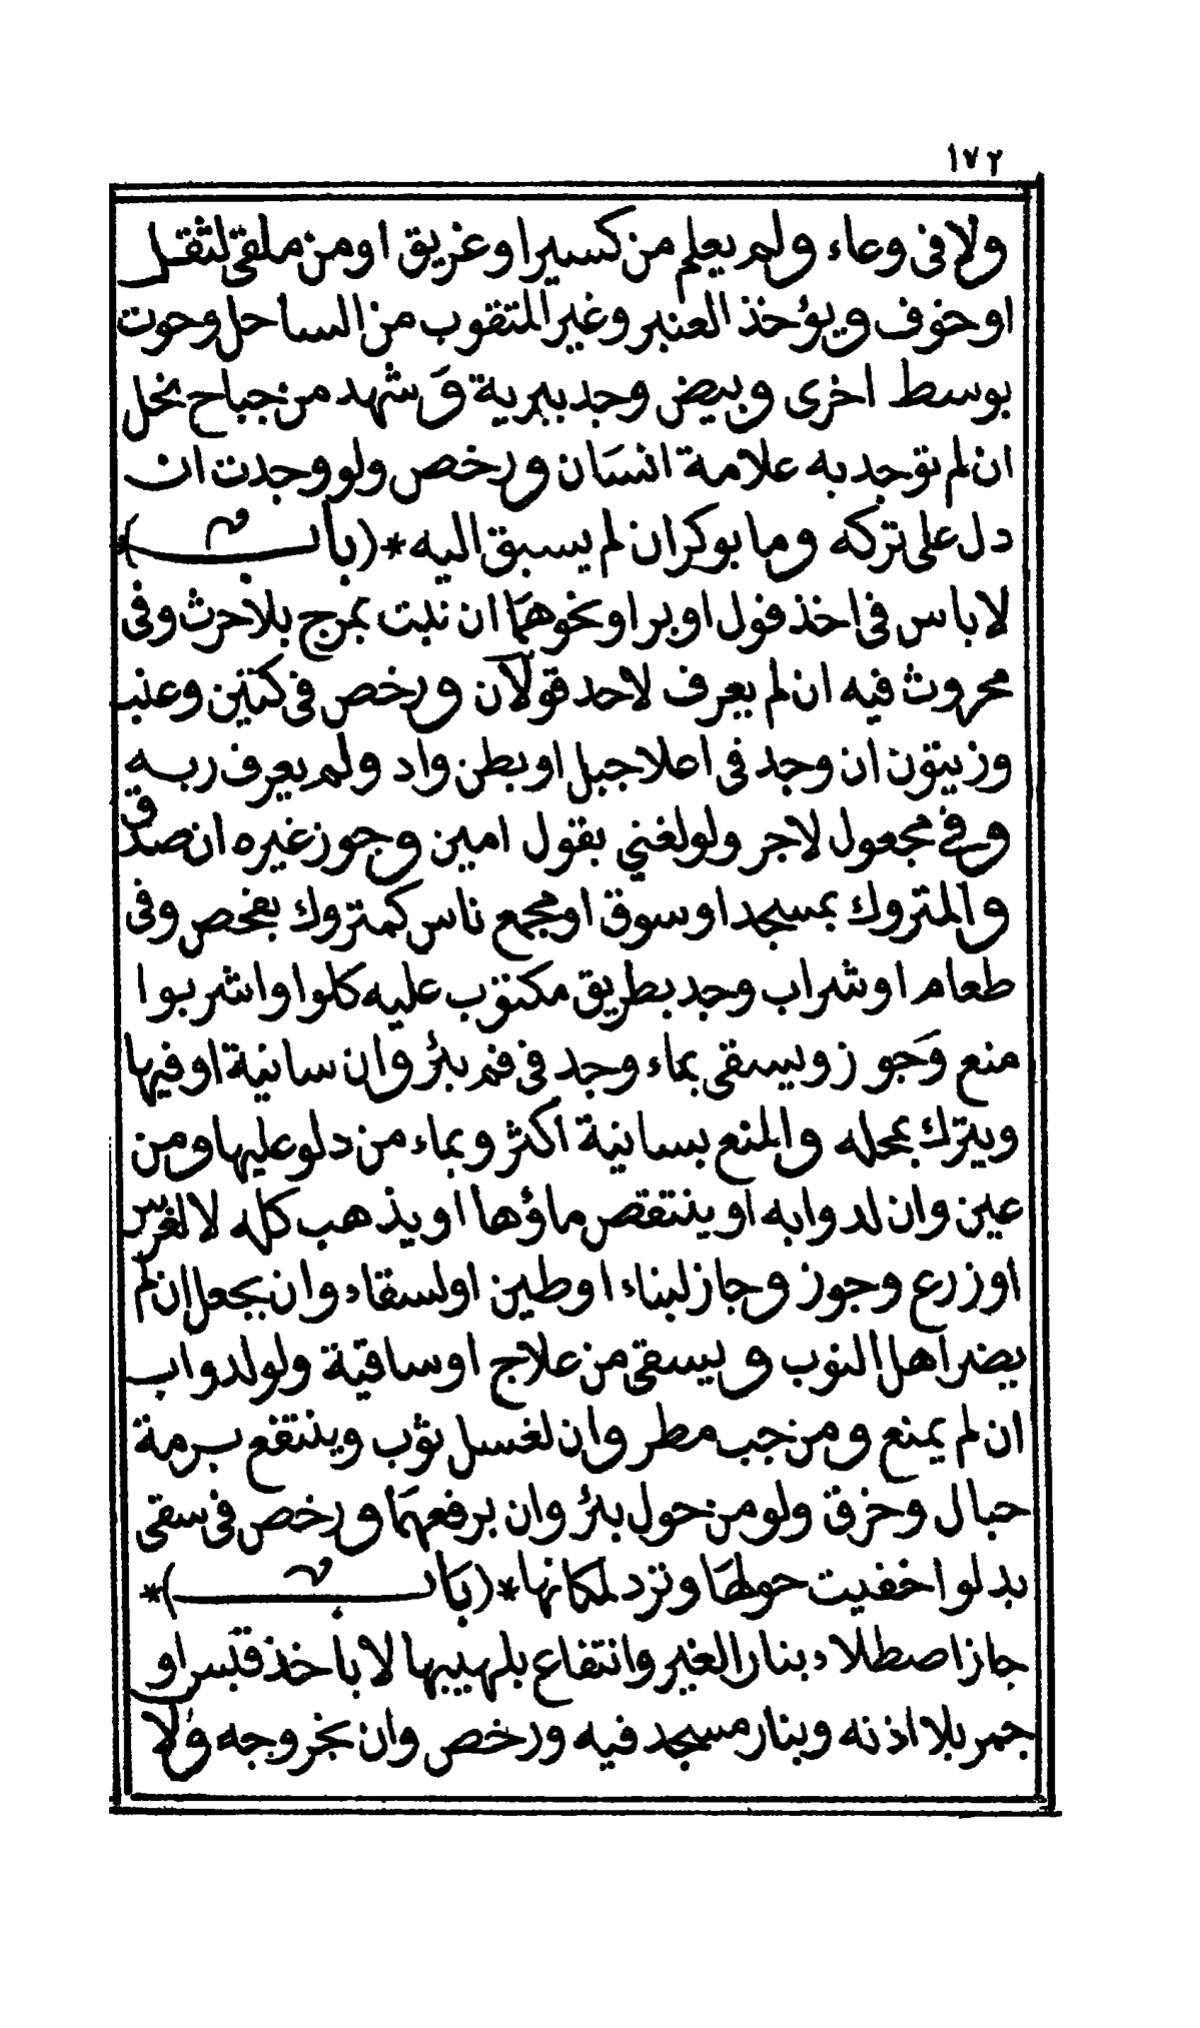 ١٧٢
ولا في وعاء ولم يعلم من كسير او غريق او من ملقى لثقل
او خوف ويؤخذ العنبر وغير المثقوب من الساحل وحوت
بوسط اخرى وبيض وجد ببرية وشهد من جباح نحل
ان لم توجد به علامة انسان ورخص ولو وجدت ان
دل على تركه وما بوكر ان لم يسبق اليه *(باب)*
لا باس في اخذ فول او بر او نحوهما ان نبت بمرج بلا حرث وفي
محروث فيه ان لم يعرف لاحد قولان ورخص في كتين وعنب
وزيتون ان وجد في اعلا جبل او بطن واد ولم يعرف ربه
وفي مجعول لاجر ولو لغني بقول امين وجوز غيره ان صدق
والمتروك بمسجد او سوق او مجمع ناس كمتروك بفحص وفي
طعام او شراب وجد بطريق مكتوب عليه كلوا واشربوا
منع وجوز ويسقى بماء وجد في فم بئر وان سانية او فيها
ويترك بمحله والمنع بسانية اكثر وبماء من دلو عليها ومن
عين وان لدوابه او ينتقص ماؤها او يذهب كله لا لغرس
او زرع وجوز وجاز لبناء او طين او لسقاء وان بجعل ان لم
يضر اهل النوب ويسقى من علاج او ساقية ولو لدواب
ان لم يمنع ومن جب مطر وان لغسل ثوب وينتفع برمة
حبال وخرق ولو من حول بئر وان برفعهما ورخص في سقى
بدلو اخفيت حولها وترد لمكانها *(باب)*
جاز اصطلاء بنار الغير وانتفاع بلهيبها لا باخذ قبس او
جمر بلا اذنه وبنار مسجد فيه ورخص وان بخروجه ولا